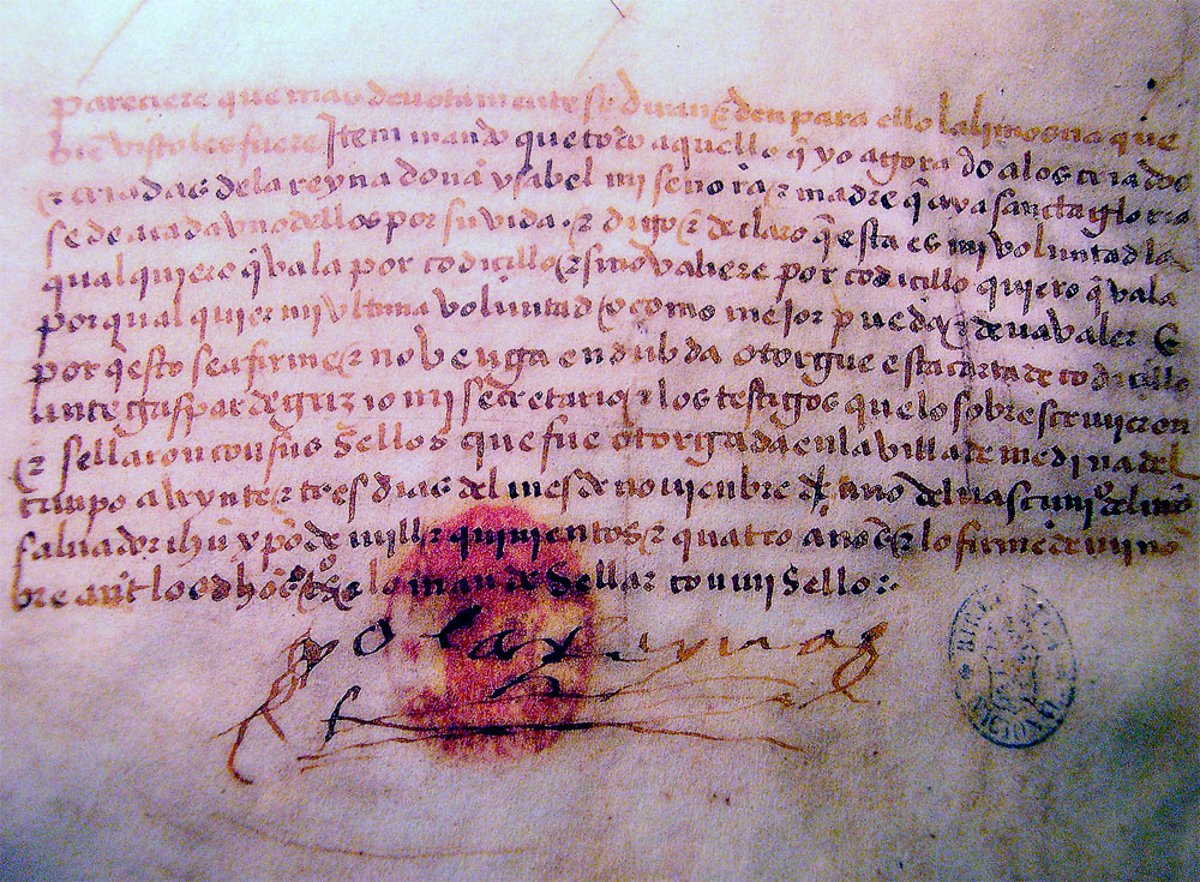 pareciere que mas devotamente se diran & den para ello la limosna que
bien visto les fuere Item mando que todo aquello q̃ yo agora do a los criados
& criadas de la reyna dona ysabel mi señora & madre q̃ aya sancta gloria
se de a cada uno dellos por su vida. & digo & declaro q̃ esta es mi voluntad la
qual quiero q̃ vala por codicillo & si no valiere por codicillo quiero q̃ vala
por qualquier mi ultima voluntad o como mejor pueda & deva valer E
por q̃ esto sea firme & no venga en dubda otorgue esta carta de codicillo
ante gaspar de grizio mi secretario & los testigos que lo sobrescrivieron
& sellaron con sus sellos que fue otorgada en la villa de medina del
campo a veynte & tres dias del mes de noviembre del año del nascimi° del nr̃o
salvador ihũ xp̃o de mill & quinientos & quatro años & lo firme de mi no
bre ante los & lo mande sellar con mi sello:.
yo la Reyna